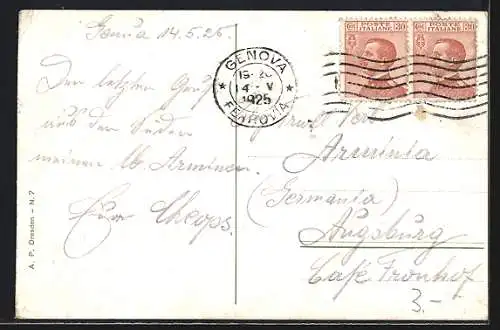 Genua 14.5.25.
Den letzten Gruß
aus dem Süden
meinen lb. Arminen
Euer Cheops.
A. P. Dresden – N. 7
GENOVA
14 V
1925
FERROVIA
POSTE ITALIANE
30
POSTE ITALIANE
30
Arminia
(Germania)
Augsburg
Café Fronhof
3.-